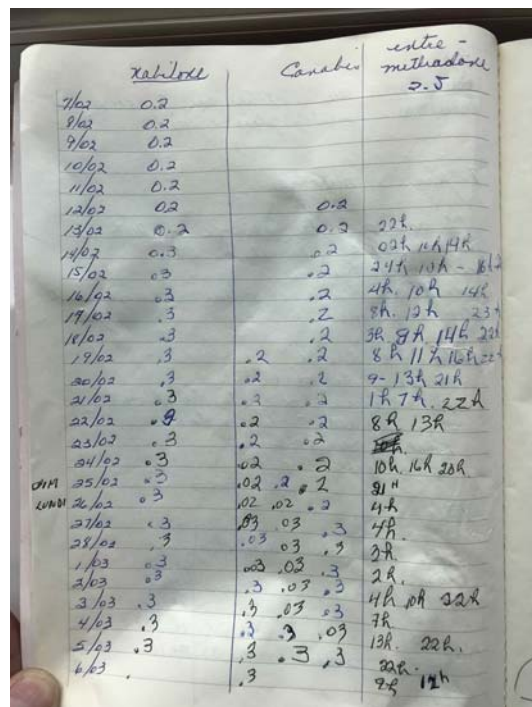 entre -
Nabilone Canabis methadone
2.5
7/02 0.2
8/02 0.2
9/02 0.2
10/02 0.2
11/02 0.2
12/02 0.2 0.2
13/02 0.2 0.2 22h.
14/02 0.3 .2 02h 11h 19h
15/02 .3 .2 24h 10h -
16/02 .3 .2 4h. 10h 14h
17/02 .3 .2 8h. 12h 23h
18/02 .3 .2 3h 9h 14h 22h
19/02 .3 .2 .2 8h 11h 16h 22h
20/02 .3 .2 .2 9- 13h 21h
21/02 .3 .2 .2 1h 7h. 22h
22/02 .2 .2 8h 13h
23/02 .3 .2 .2
24/02 .3 .02 .2 10h. 16h 20h.
DIM 25/02 .3 .02 .2 .2 21h
LUNDI 26/02 .3 .02 .02 .2 4h
27/02 .3 .03 .03 .3 4h.
28/02 .3 .03 .03 .3 3h.
1/03 .3 .03 .03 .3 2h.
2/03 .3 .3 .03 .3 4h 10h 22h
3/03 .3 .3 .03 .03 7h
4/03 .3 .3 .3 .03 13h. 22h.
5/03 .3 .3 .3 .3 22h.
6/03 . .3 12h